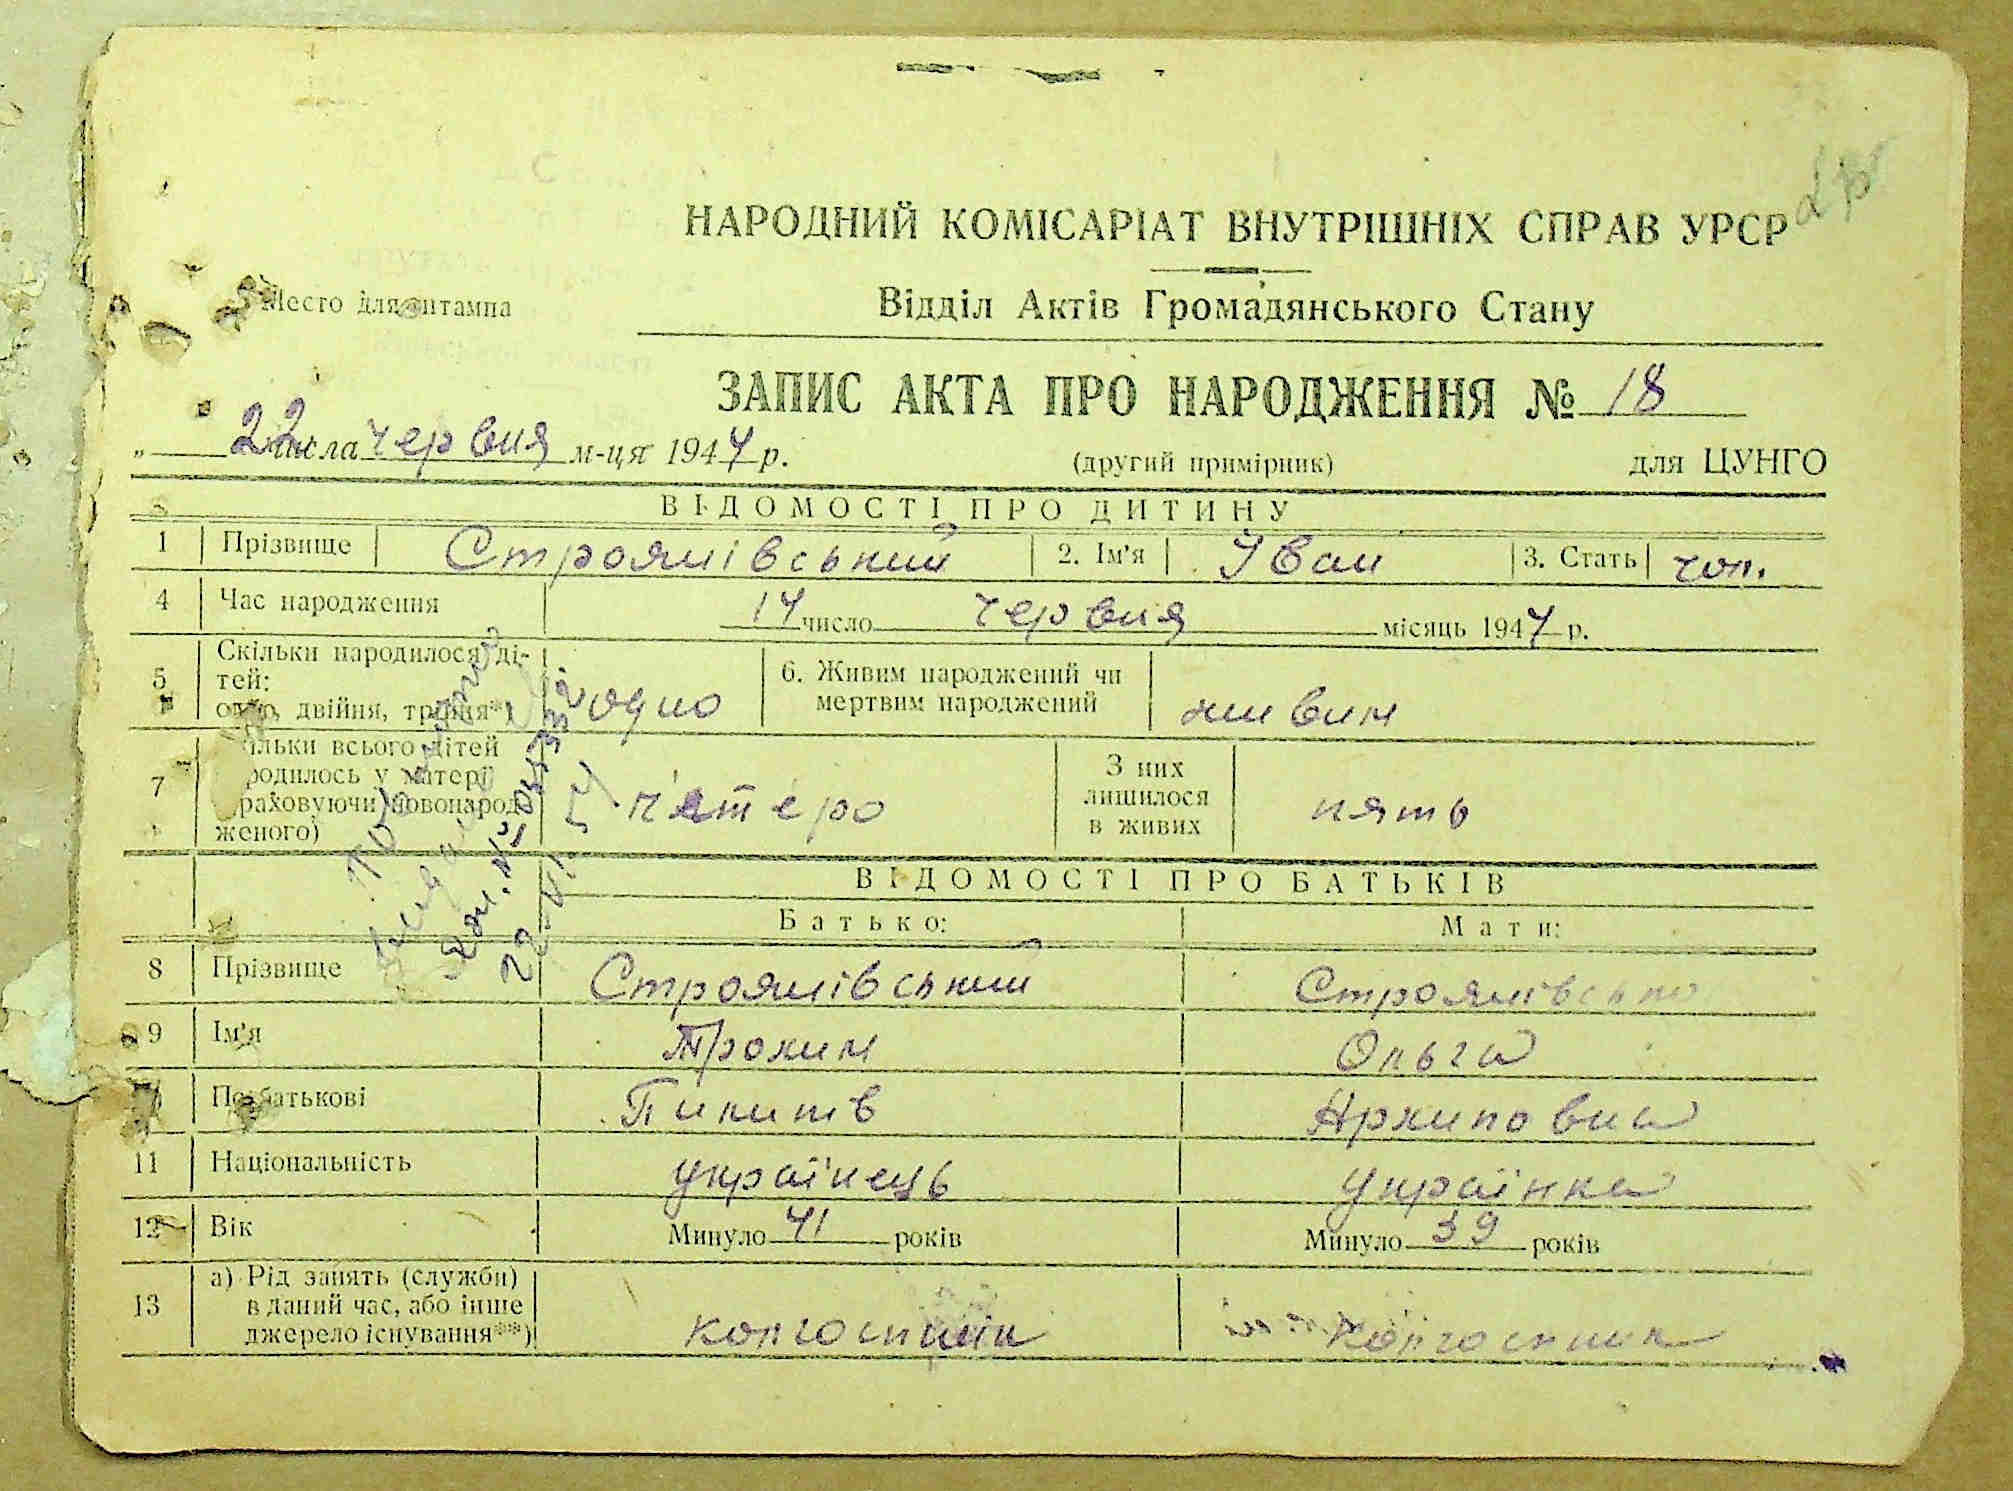 НАРОДНИЙ КОМІСАРІАТ ВНУТРІШНІХ СПРАВ УРСР
Место для штампа
Відділ Актів Громадянського Стану
ЗАПИС АКТА ПРО НАРОДЖЕННЯ № 18
„ 22 числа червня м-ця 1944 р.
(другий примірник) для ЦУНГО
ВІДОМОСТІ ПРО ДИТИНУ
1 Прізвище Строянівський 2. Ім'я Іван 3. Стать чол.
4 Час народження 14 число червня місяць 1944 р.
5 Скільки народилося ді-
тей:
одно, двійня, трійня*)
одно
6. Живим народжений чи
мертвим народжений
живим
7 Скільки всього дітей
родилось у матері
раховуючи новонарод-
женого)
пятеро
З них
лишилося
в живих
пять
ВІДОМОСТІ ПРО БАТЬКІВ
Батько: Мати:
8 Прізвище Строянівський Строянівська
9 Ім'я Трохим Ольга
10 По батькові Архиповна
11 Національність українець українка
12 Вік Минуло 41 років Минуло 39 років
13 а) Рід занять (служби)
в даний час, або інше
джерело існування**)
колгоспник колгоспник